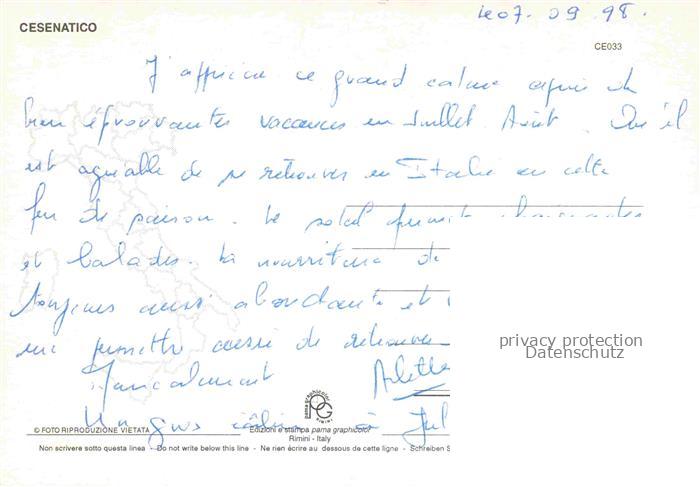 le 07.09.98.
CESENATICO
CE033
J'apprécie ce grand calme après de
bien éprouvantes vacances en Juillet Août. Qu'il
est agréable de se retrouver en Italie en cette
fin de saison. Le soleil permet
et balades. La nourriture
toujours aussi abondante et
me permettre aussi de retrouver
Amicalement Arlette
Un gros câlin à Jul
privacy protection
Datenschutz
pama graphicolor
PG
RIMINI
© FOTO RIPRODUZIONE VIETATA
Edizioni e stampa pama graphicolor
Rimini - Italy
Non scrivere sotto questa linea - Do not write below this line - Ne rien écrire au dessous de cette ligne - Schreiben S